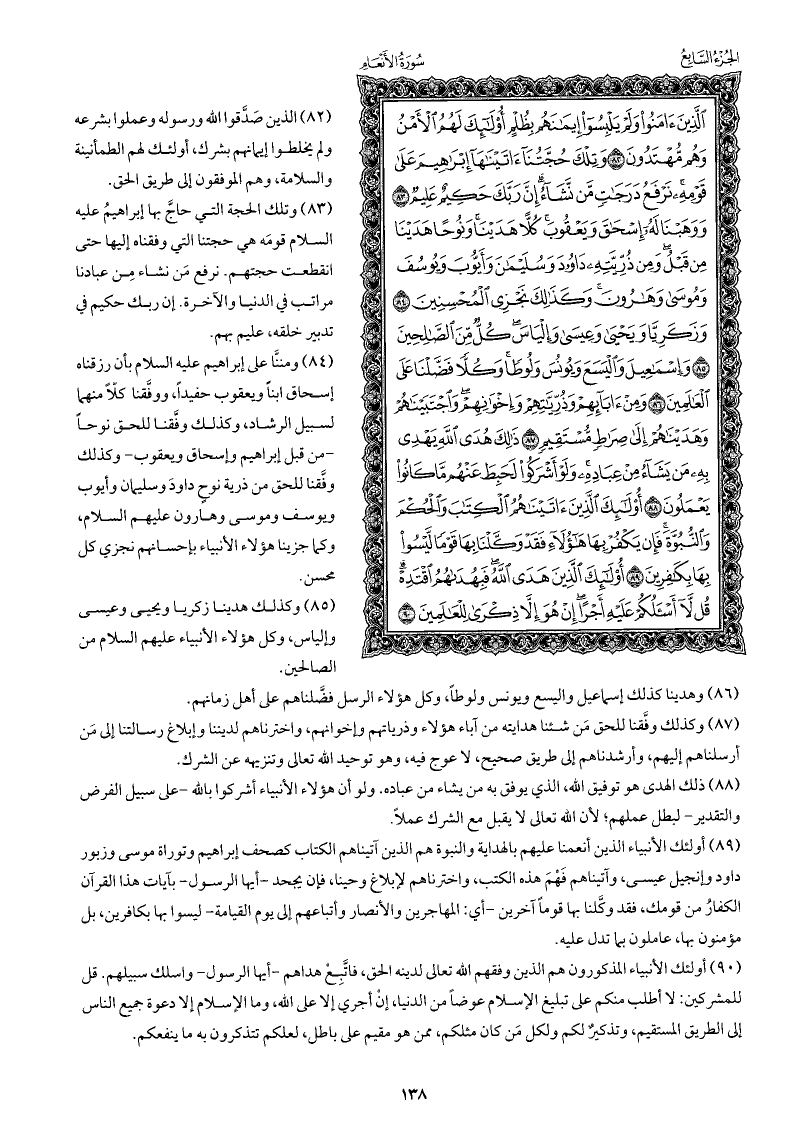 الجزء السابع
سورة الأنعام
ٱلَّذِينَ ءَامَنُواْ وَلَمْ يَلْبِسُوٓاْ إِيمَٰنَهُم بِظُلْمٍ أُوْلَٰٓئِكَ لَهُمُ ٱلْأَمْنُ
وَهُم مُّهْتَدُونَ ٨٢ وَتِلْكَ حُجَّتُنَآ ءَاتَيْنَٰهَآ إِبْرَٰهِيمَ عَلَىٰ
قَوْمِهِۦۚ نَرْفَعُ دَرَجَٰتٍ مَّن نَّشَآءُۗ إِنَّ رَبَّكَ حَكِيمٌ عَلِيمٌ ٨٣
وَوَهَبْنَا لَهُۥٓ إِسْحَٰقَ وَيَعْقُوبَۚ كُلًّا هَدَيْنَاۚ وَنُوحًا هَدَيْنَا
مِن قَبْلُۖ وَمِن ذُرِّيَّتِهِۦ دَاوُۥدَ وَسُلَيْمَٰنَ وَأَيُّوبَ وَيُوسُفَ
وَمُوسَىٰ وَهَٰرُونَۚ وَكَذَٰلِكَ نَجْزِى ٱلْمُحْسِنِينَ ٨٤
وَزَكَرِيَّا وَيَحْيَىٰ وَعِيسَىٰ وَإِلْيَاسَۖ كُلٌّ مِّنَ ٱلصَّٰلِحِينَ
٨٥ وَإِسْمَٰعِيلَ وَٱلْيَسَعَ وَيُونُسَ وَلُوطًاۚ وَكُلًّا فَضَّلْنَا عَلَى
ٱلْعَٰلَمِينَ ٨٦ وَمِنْ ءَابَآئِهِمْ وَذُرِّيَّٰتِهِمْ وَإِخْوَٰنِهِمْۖ وَٱجْتَبَيْنَٰهُمْ
وَهَدَيْنَٰهُمْ إِلَىٰ صِرَٰطٍ مُّسْتَقِيمٍ ٨٧ ذَٰلِكَ هُدَى ٱللَّهِ يَهْدِى
بِهِۦ مَن يَشَآءُ مِنْ عِبَادِهِۦۚ وَلَوْ أَشْرَكُواْ لَحَبِطَ عَنْهُم مَّا كَانُواْ
يَعْمَلُونَ ٨٨ أُوْلَٰٓئِكَ ٱلَّذِينَ ءَاتَيْنَٰهُمُ ٱلْكِتَٰبَ وَٱلْحُكْمَ
وَٱلنُّبُوَّةَۚ فَإِن يَكْفُرْ بِهَا هَٰٓؤُلَآءِ فَقَدْ وَكَّلْنَا بِهَا قَوْمًا لَّيْسُواْ
بِهَا بِكَٰفِرِينَ ٨٩ أُوْلَٰٓئِكَ ٱلَّذِينَ هَدَى ٱللَّهُۖ فَبِهُدَىٰهُمُ ٱقْتَدِهْۗ
قُل لَّآ أَسْـَٔلُكُمْ عَلَيْهِ أَجْرًاۖ إِنْ هُوَ إِلَّا ذِكْرَىٰ لِلْعَٰلَمِينَ ٩٠
(٨٢) الذين صَدَّقوا الله ورسوله وعملوا بشرعه
ولم يخلطوا إيمانهم بشرك، أولئك لهم الطمأنينة
والسلامة، وهم الموفقون إلى طريق الحق.
(٨٣) وتلك الحجة التي حاجَّ بها إبراهيمُ عليه
السلام قومَه هي حجتنا التي وفقناه إليها حتى
انقطعت حجتهم. نرفع مَن نشاء مِن عبادنا
مراتب في الدنيا والآخرة. إن ربك حكيم في
تدبير خلقه، عليم بهم.
(٨٤) ومننَّا على إبراهيم عليه السلام بأن رزقناه
إسحاق ابناً ويعقوب حفيداً، ووفَّقنا كلّاً منهما
لسبيل الرشاد، وكذلك وفَّقنا للحق نوحاً
-من قبل إبراهيم وإسحاق ويعقوب- وكذلك
وفَّقنا للحق من ذرية نوح داودَ وسليمان وأيوب
ويوسف وموسى وهارون عليهم السلام،
وكما جزينا هؤلاء الأنبياء بإحسانهم نجزي كل
محسن.
(٨٥) وكذلك هدينا زكريا ويحيى وعيسى
وإلياس، وكل هؤلاء الأنبياء عليهم السلام من
الصالحين.
(٨٦) وهدينا كذلك إسماعيل واليسع ويونس ولوطاً، وكل هؤلاء الرسل فضَّلناهم على أهل زمانهم.
(٨٧) وكذلك وفَّقنا للحق مَن شئنا هدايته من آباء هؤلاء وذرياتهم وإخوانهم، واخترناهم لديننا وإبلاغ رسالتنا إلى مَن
أرسلناهم إليهم، وأرشدناهم إلى طريق صحيح، لا عوج فيه، وهو توحيد الله تعالى وتنزيهه عن الشرك.
(٨٨) ذلك الهدى هو توفيق الله، الذي يوفق به من يشاء من عباده. ولو أن هؤلاء الأنبياء أشركوا بالله -على سبيل الفرض
والتقدير- لبطل عملهم؛ لأن الله تعالى لا يقبل مع الشرك عملاً.
(٨٩) أولئك الأنبياء الذين أنعمنا عليهم بالهداية والنبوة هم الذين آتيناهم الكتاب كصحف إبراهيم وتوراة موسى وزبور
داود وإنجيل عيسى، وآتيناهم فَهْمَ هذه الكتب، واخترناهم لإبلاغ وحينا، فإن يجحد -أيها الرسول- بآيات هذا القرآن
الكفارُ من قومك، فقد وكَّلنا بها قوماً آخرين -أي: المهاجرين والأنصار وأتباعهم إلى يوم القيامة- ليسوا بها بكافرين، بل
مؤمنون بها، عاملون بما تدل عليه.
(٩٠) أولئك الأنبياء المذكورون هم الذين وفقهم الله تعالى لدينه الحق، فاتَّبِعْ هداهم -أيها الرسول- واسلك سبيلهم. قل
للمشركين: لا أطلب منكم على تبليغ الإسلام عوضاً من الدنيا، إنْ أجري إلا على الله، وما الإسلام إلا دعوة جميع الناس
إلى الطريق المستقيم، وتذكيرٌ لكم ولكل مَن كان مثلكم، ممن هو مقيم على باطل، لعلكم تتذكرون به ما ينفعكم.
١٣٨